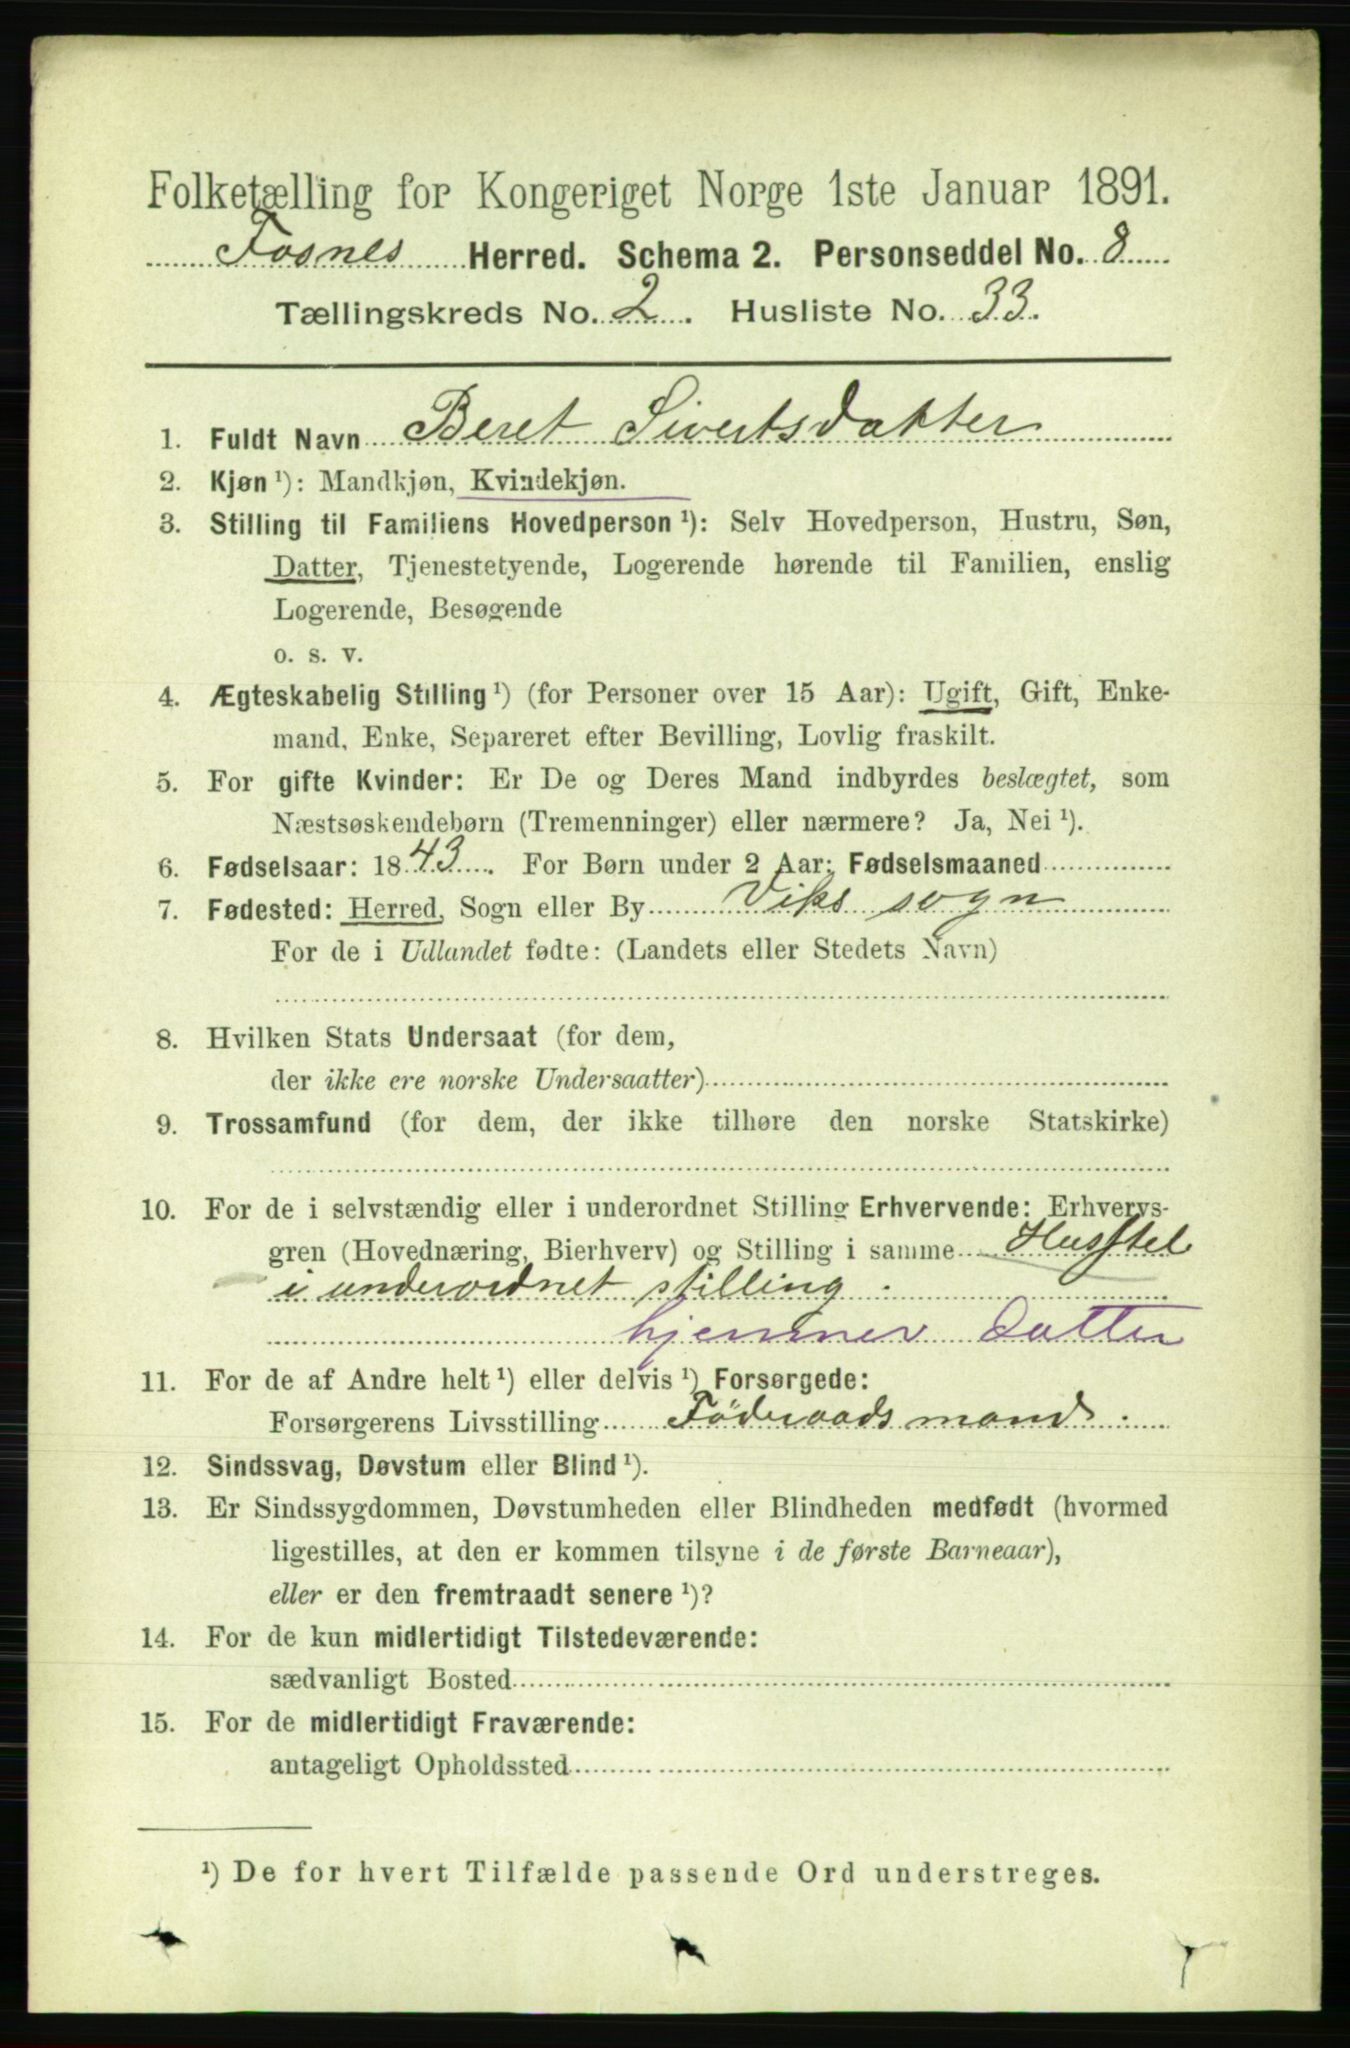 Folketælling for Kongeriget Norge 1ste Januar 1891.
Fosnes Herred. Schema 2. Personseddel No. 8
Tællingskreds No. 2. Husliste No. 33.
1. Fuldt Navn Beret Sivertsdatter
2. Kjøn ¹): Mandkjøn, Kvindekjøn.
3. Stilling til Familiens Hovedperson ¹): Selv Hovedperson, Hustru, Søn,
Datter, Tjenestetyende, Logerende hørende til Familien, enslig
Logerende, Besøgende
o. s. v.
4. Ægteskabelig Stilling ¹) (for Personer over 15 Aar): Ugift, Gift, Enke-
mand, Enke, Separeret efter Bevilling, Lovlig fraskilt.
5. For gifte Kvinder: Er De og Deres Mand indbyrdes beslægtet, som
Næstsøskendebørn (Tremenninger) eller nærmere? Ja, Nei ¹).
6. Fødselsaar: 1843. For Børn under 2 Aar: Fødselsmaaned
7. Fødested: Herred, Sogn eller By Viks sogn
For de i Udlandet fødte: (Landets eller Stedets Navn)
8. Hvilken Stats Undersaat (for dem,
der ikke ere norske Undersaatter)
9. Trossamfund (for dem, der ikke tilhøre den norske Statskirke)
10. For de i selvstændig eller i underordnet Stilling Erhvervende: Erhvervs-
gren (Hovednæring, Bierhverv) og Stilling i samme Husstel
i underordnet stilling.
hjemmev Datter
11. For de af Andre helt ¹) eller delvis ¹) Forsørgede:
Forsørgerens Livsstilling Föderaadsmand.
12. Sindssvag, Døvstum eller Blind ¹).
13. Er Sindssygdommen, Døvstumheden eller Blindheden medfødt (hvormed
ligestilles, at den er kommen tilsyne i de første Barneaar),
eller er den fremtraadt senere ¹)?
14. For de kun midlertidigt Tilstedeværende:
sædvanligt Bosted
15. For de midlertidigt Fraværende:
antageligt Opholdssted
¹) De for hvert Tilfælde passende Ord understreges.